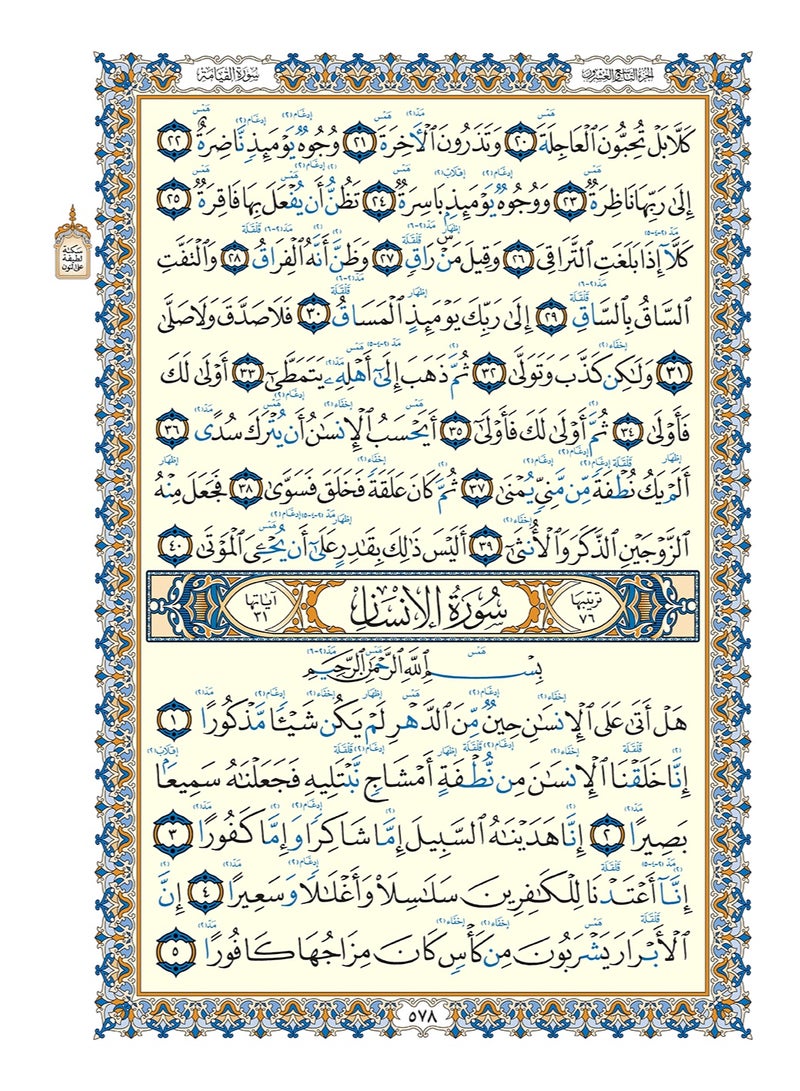 سُورَةُ القِيَامَةِ
الجُزْءُ التَّاسِعُ وَالعِشْرُونَ
كَلَّا بَلۡ تُحِبُّونَ ٱلۡعَاجِلَةَ ٢٠ وَتَذَرُونَ ٱلۡأٓخِرَةَ ٢١ وُجُوهٞ يَوۡمَئِذٖ نَّاضِرَةٌ ٢٢
إِلَىٰ رَبِّهَا نَاظِرَةٞ ٢٣ وَوُجُوهٞ يَوۡمَئِذِۭ بَاسِرَةٞ ٢٤ تَظُنُّ أَن يُفۡعَلَ بِهَا فَاقِرَةٞ ٢٥
كَلَّآ إِذَا بَلَغَتِ ٱلتَّرَاقِيَ ٢٦ وَقِيلَ مَنۡۜ رَاقٖ ٢٧ وَظَنَّ أَنَّهُ ٱلۡفِرَاقُ ٢٨ وَٱلۡتَفَّتِ
سكتة
لطيفة
على النون
ٱلسَّاقُ بِٱلسَّاقِ ٢٩ إِلَىٰ رَبِّكَ يَوۡمَئِذٍ ٱلۡمَسَاقُ ٣٠ فَلَا صَدَّقَ وَلَا صَلَّىٰ
٣١ وَلَٰكِن كَذَّبَ وَتَوَلَّىٰ ٣٢ ثُمَّ ذَهَبَ إِلَىٰٓ أَهۡلِهِۦ يَتَمَطَّىٰٓ ٣٣ أَوۡلَىٰ لَكَ
فَأَوۡلَىٰ ٣٤ ثُمَّ أَوۡلَىٰ لَكَ فَأَوۡلَىٰٓ ٣٥ أَيَحۡسَبُ ٱلۡإِنسَٰنُ أَن يُتۡرَكَ سُدًى ٣٦
أَلَمۡ يَكُ نُطۡفَةٗ مِّن مَّنِيّٖ يُمۡنَىٰ ٣٧ ثُمَّ كَانَ عَلَقَةٗ فَخَلَقَ فَسَوَّىٰ ٣٨ فَجَعَلَ مِنۡهُ
ٱلزَّوۡجَيۡنِ ٱلذَّكَرَ وَٱلۡأُنثَىٰٓ ٣٩ أَلَيۡسَ ذَٰلِكَ بِقَٰدِرٍ عَلَىٰٓ أَن يُحۡـِۧيَ ٱلۡمَوۡتَىٰ ٤٠
ترتيبها ٧٦
سُورَةُ الإِنْسَانِ
آياتها ٣١
بِسۡمِ ٱللَّهِ ٱلرَّحۡمَٰنِ ٱلرَّحِيمِ
هَلۡ أَتَىٰ عَلَى ٱلۡإِنسَٰنِ حِينٞ مِّنَ ٱلدَّهۡرِ لَمۡ يَكُن شَيۡـٔٗا مَّذۡكُورًا ١
إِنَّا خَلَقۡنَا ٱلۡإِنسَٰنَ مِن نُّطۡفَةٍ أَمۡشَاجٖ نَّبۡتَلِيهِ فَجَعَلۡنَٰهُ سَمِيعَۢا
بَصِيرًا ٢ إِنَّا هَدَيۡنَٰهُ ٱلسَّبِيلَ إِمَّا شَاكِرٗا وَإِمَّا كَفُورًا ٣
إِنَّآ أَعۡتَدۡنَا لِلۡكَٰفِرِينَ سَلَٰسِلَاْ وَأَغۡلَٰلٗا وَسَعِيرًا ٤ إِنَّ
ٱلۡأَبۡرَارَ يَشۡرَبُونَ مِن كَأۡسٖ كَانَ مِزَاجُهَا كَافُورًا ٥
٥٧٨